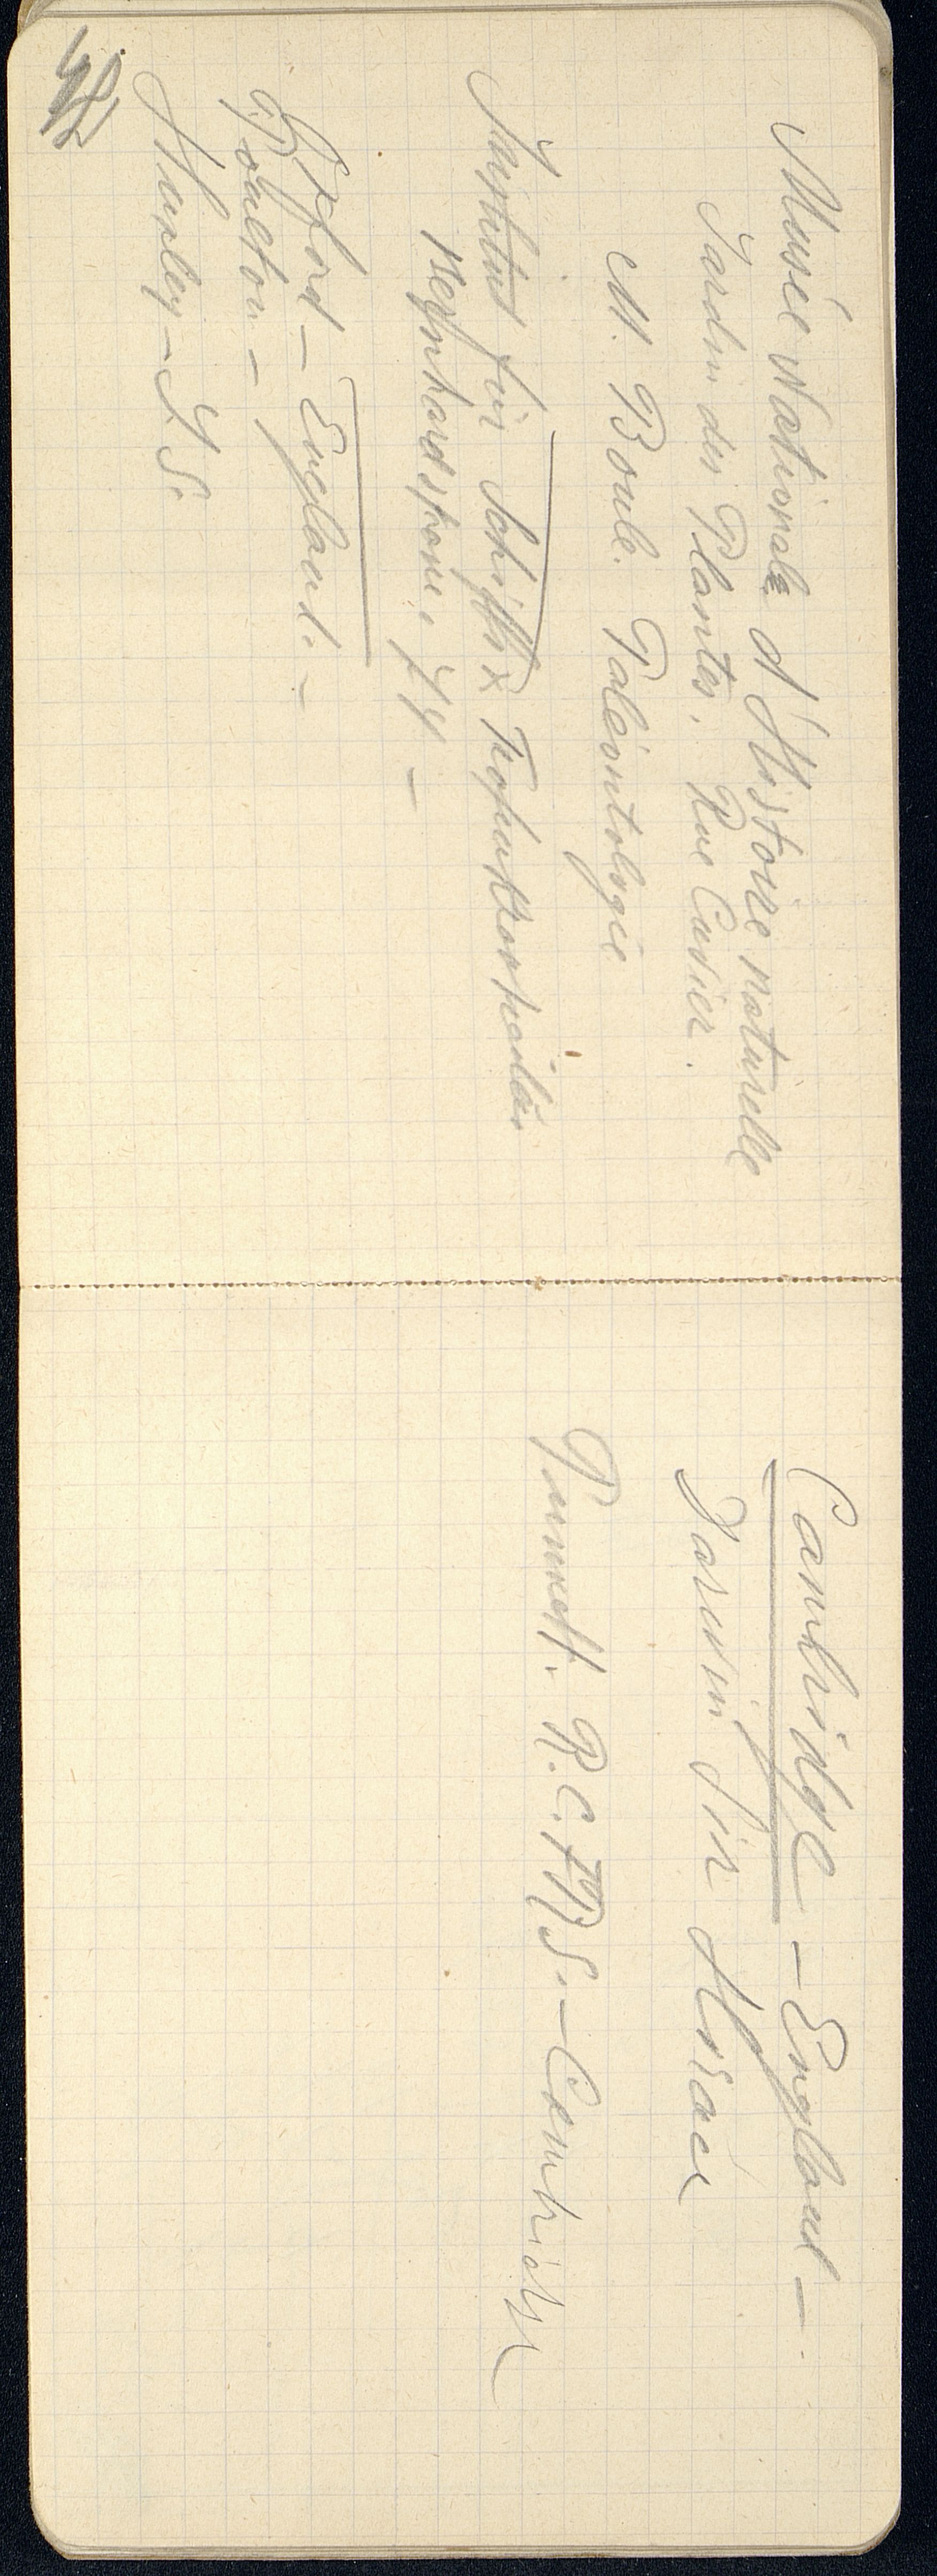 Musée National d'Histoire naturelle
Jardin des Plantes. Rue Cuvier.
M. Boule. Paléontologie
Institut für Schiffs & Tropenkrankheiten
Bernhardstrasse. 74 –
Oxford – England. –
Poulton –
Huxley – J. S.
Cambridge – England –
Darwin Sir Horace
Punnett. R. C. F.R.S. – Cambridge